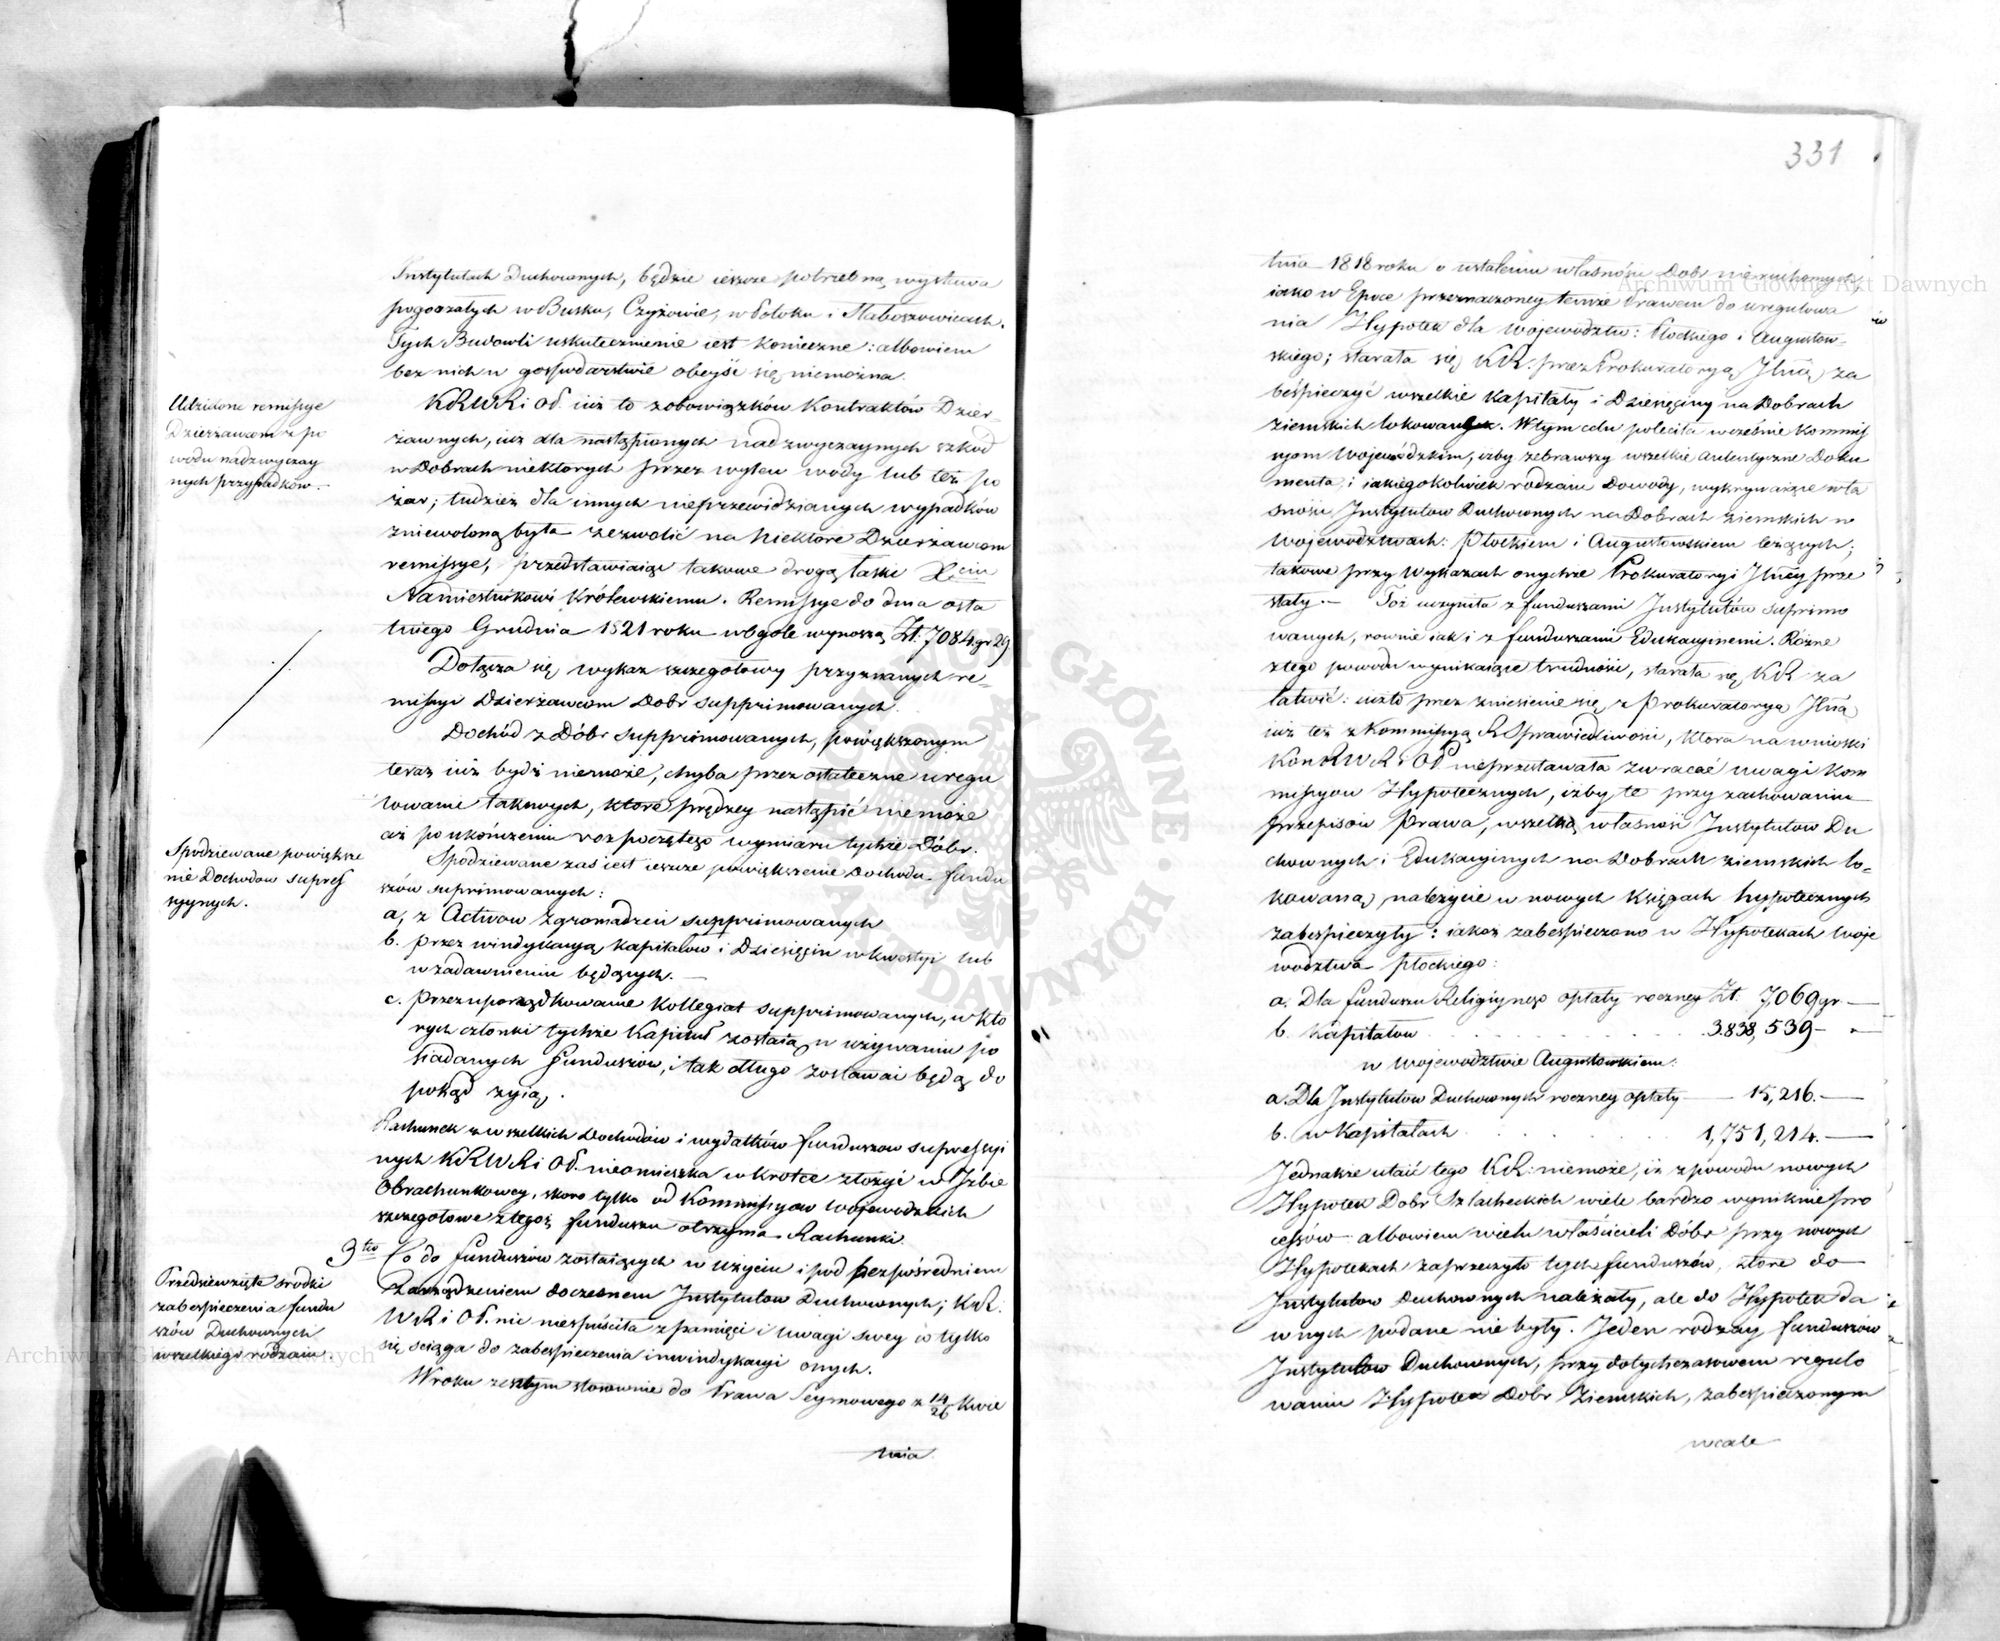 331
Instytutach Duchownych, będzie ieszcze potrzebną wystawa
pogorzałych w Busku, Czyżowie, w Potoku i Słaboszowicach.
Tych Budowli uskutecznienie iest konieczne: albowiem
bez nich w gospodarstwie obeyść się niemożna.
Udzielone remissye
Dzierżawcom z po
wodu nadzwyczay
nych przypadków.
KRWR i OP. iuż to z obowiązków Kontraktów Dzier
żawnych, iuż dla nastąpionych nadzwyczaynych szkod
w Dobrach niektorych przez wylew wody lub też po
żar; tudzież dla innych nieprzewidzianych wypadków
zniewoloną była zezwolić na niektóre Dzierżawcom
remissye, przedstawiaiąc takowe drogą łaski Xciu
Namiestnikowi Królewskiemu. Remissye do dnia osta
tniego Grudnia 1821 roku wogóle wynoszą Zł: 7084 gr 29.
Dołącza się, wykaz szczegołowy przyznanych re-
missyi Dzierżawcom Dobr supprimowanych.
Dochód z Dóbr supprimowanych, powiększonym
teraz iuż bydź niemoże, chyba przez ostateczne uregu
lowanie takowych, które prędzey nastąpić niemoże
aż po ukończeniu rozpoczętego wymiaru tychże Dóbr.
Spodziewane powiększe
nie Dochodow supres
syynych.
Spodziewane zaś iest ieszcze powiększenie Dochodu fundu
szów suprimowanych:
a, z Activow Zgromadzeń supprimowanych
b. przez windykacyą kapitałow i Dziesięcin w kwestyi lub
w zadawnieniu będących.
c. przez uporządkowanie Kollegiat supprimowanych, w któ
rych członki tychże Kapituł zostaią w używaniu po
siadanych funduszów, i tak długo zostawać będą do
pokąd żyią.
Rachunek z wszelkich Dochodów i wydatków funduszow supressyi
nych KRWR i OP. nieomieszka wkrótce złożyć w Izbie
Obrachunkowey, skoro tylko od Kommissyow Woiewodzkich
szczegołowe z tegoż funduszu otrzyma Rachunki.
Przedsięwzięte srodki
zabespieczenia fundu
szów Duchownych
wszelkiego rodzaiu.
3tio Co do funduszów zostaiących w użyciu i pod bezpośredniem
Zarządzeniem doczesnem Instytutow Duchownych; KR.
WR i OP. nic niespuściła z pamięci i uwagi swey co tylko
się sciąga do zabespieczenia i windykacyi onych.
W roku zeszłym stosownie do Prawa Seymowego z 14/26 Kwie
tnia
tnia 1818 roku o ustaleniu własności Dobr nieruchomych,
iako w Epoce przeznaczoney temże Prawem do uregulowa
nia Hypotek dla Woiewodztw: Płockiego i Augustow-
skiego; starała się KR. przez Prokuratoryą Jlną za
bespieczyć wszelkie Kapitały i Dziesięciny na Dobrach
ziemskich lokowane. W tym celu poleciła wcześnie Kommis
syom Woiewódzkim, iżby zebrawszy wszelkie autentyczne Doku
menta, i iakiegokolwiek rodzaiu Dowody, wykrywaiące wła
sności Instytutow Duchownych na Dobrach ziemskich w
Woiewodztwach: Płockiem i Augustowskiem leżących;
takowe przy Wykazach onychże Prokuratoryi Jlney prze
słały. Toż uczyniła z funduszami Instytutów suprimo
wanych, rownie iak i z funduszami Edukacyinemi. Różne
z tego powodu wynikaiące trudności, starała się KR za
łatwić: iużto przez zniesienie się z Prokuratoryą Jlną
iuż też z Kommissyą R Sprawiedliwości, ktora na wnioski
Kom RWR i OP nieprzestawała zwracać uwagi Kom
missyow Hypotecznych, iżby te przy zachowaniu
przepisów Prawa, wszelką własność Instytutow Du
chownych i Edukacyinych na Dobrach ziemskich lo-
kowaną, należycie w nowych Księgach hypotecznych
zabespieczyły: iakoż zabespieczono w Hypotekach Woje
wodztwa Płockiego:
a. Dla funduszu Religiynego opłaty roczney Zł. 7,069 gr —
b. Kapitałow . . . . . . 3.838,539 — "—
w Wojewodztwie Augustowskiem:
a. Dla Instytutow Duchownych roczney opłaty — 15,216. —
b. w Kapitałach . . . . . 1,751,214. —
Jednakże utaić tego KR: niemoże, iż z powodu nowych
Hypotek Dobr Szlacheckich wiele bardzo wyniknie pro
cessów albowiem wielu właścicieli Dóbr przy nowych
Hypotekach zaprzeczyło tych funduszów, które do
Instytutow Duchownych należały, ale do Hypotek da
wnych podane nie były. Jeden rodzay funduszów
Instytutow Duchownych, przy dotychczasowem regulo
waniu Hypotek Dobr Ziemskich, zabespieczonym
wcale
Archiwum Główne Akt Dawnych
Archiwum Główne Akt Dawnych
ARCHIWUM GŁÓWNE AKT DAWNYCH